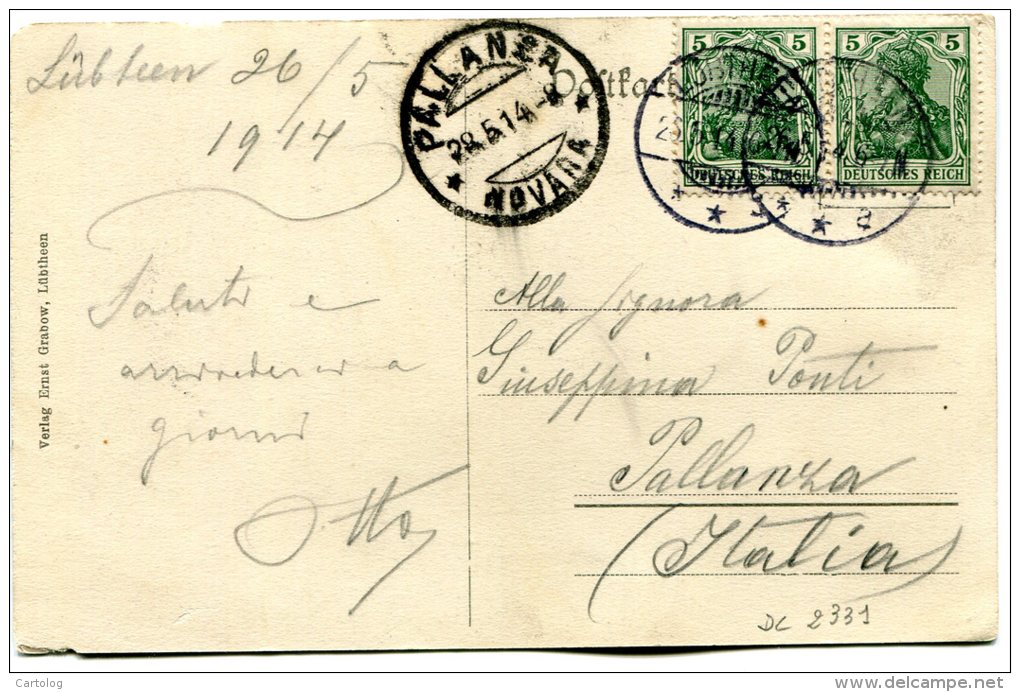 Lübtheen 26/5
1914
Saluti e
arrivederci a
giorni
Otto
Postkarte
PALLANZA
28.5.14.-8
NOVARA
5 5
DEUTSCHES REICH
5 5
DEUTSCHES REICH
LÜBTHEEN
Alla Signora
Giuseppina Ponti
Pallanza
(Italia)
DC 2331
Verlag Ernst Grabow, Lübtheen
Cartolog
www.delcampe.net